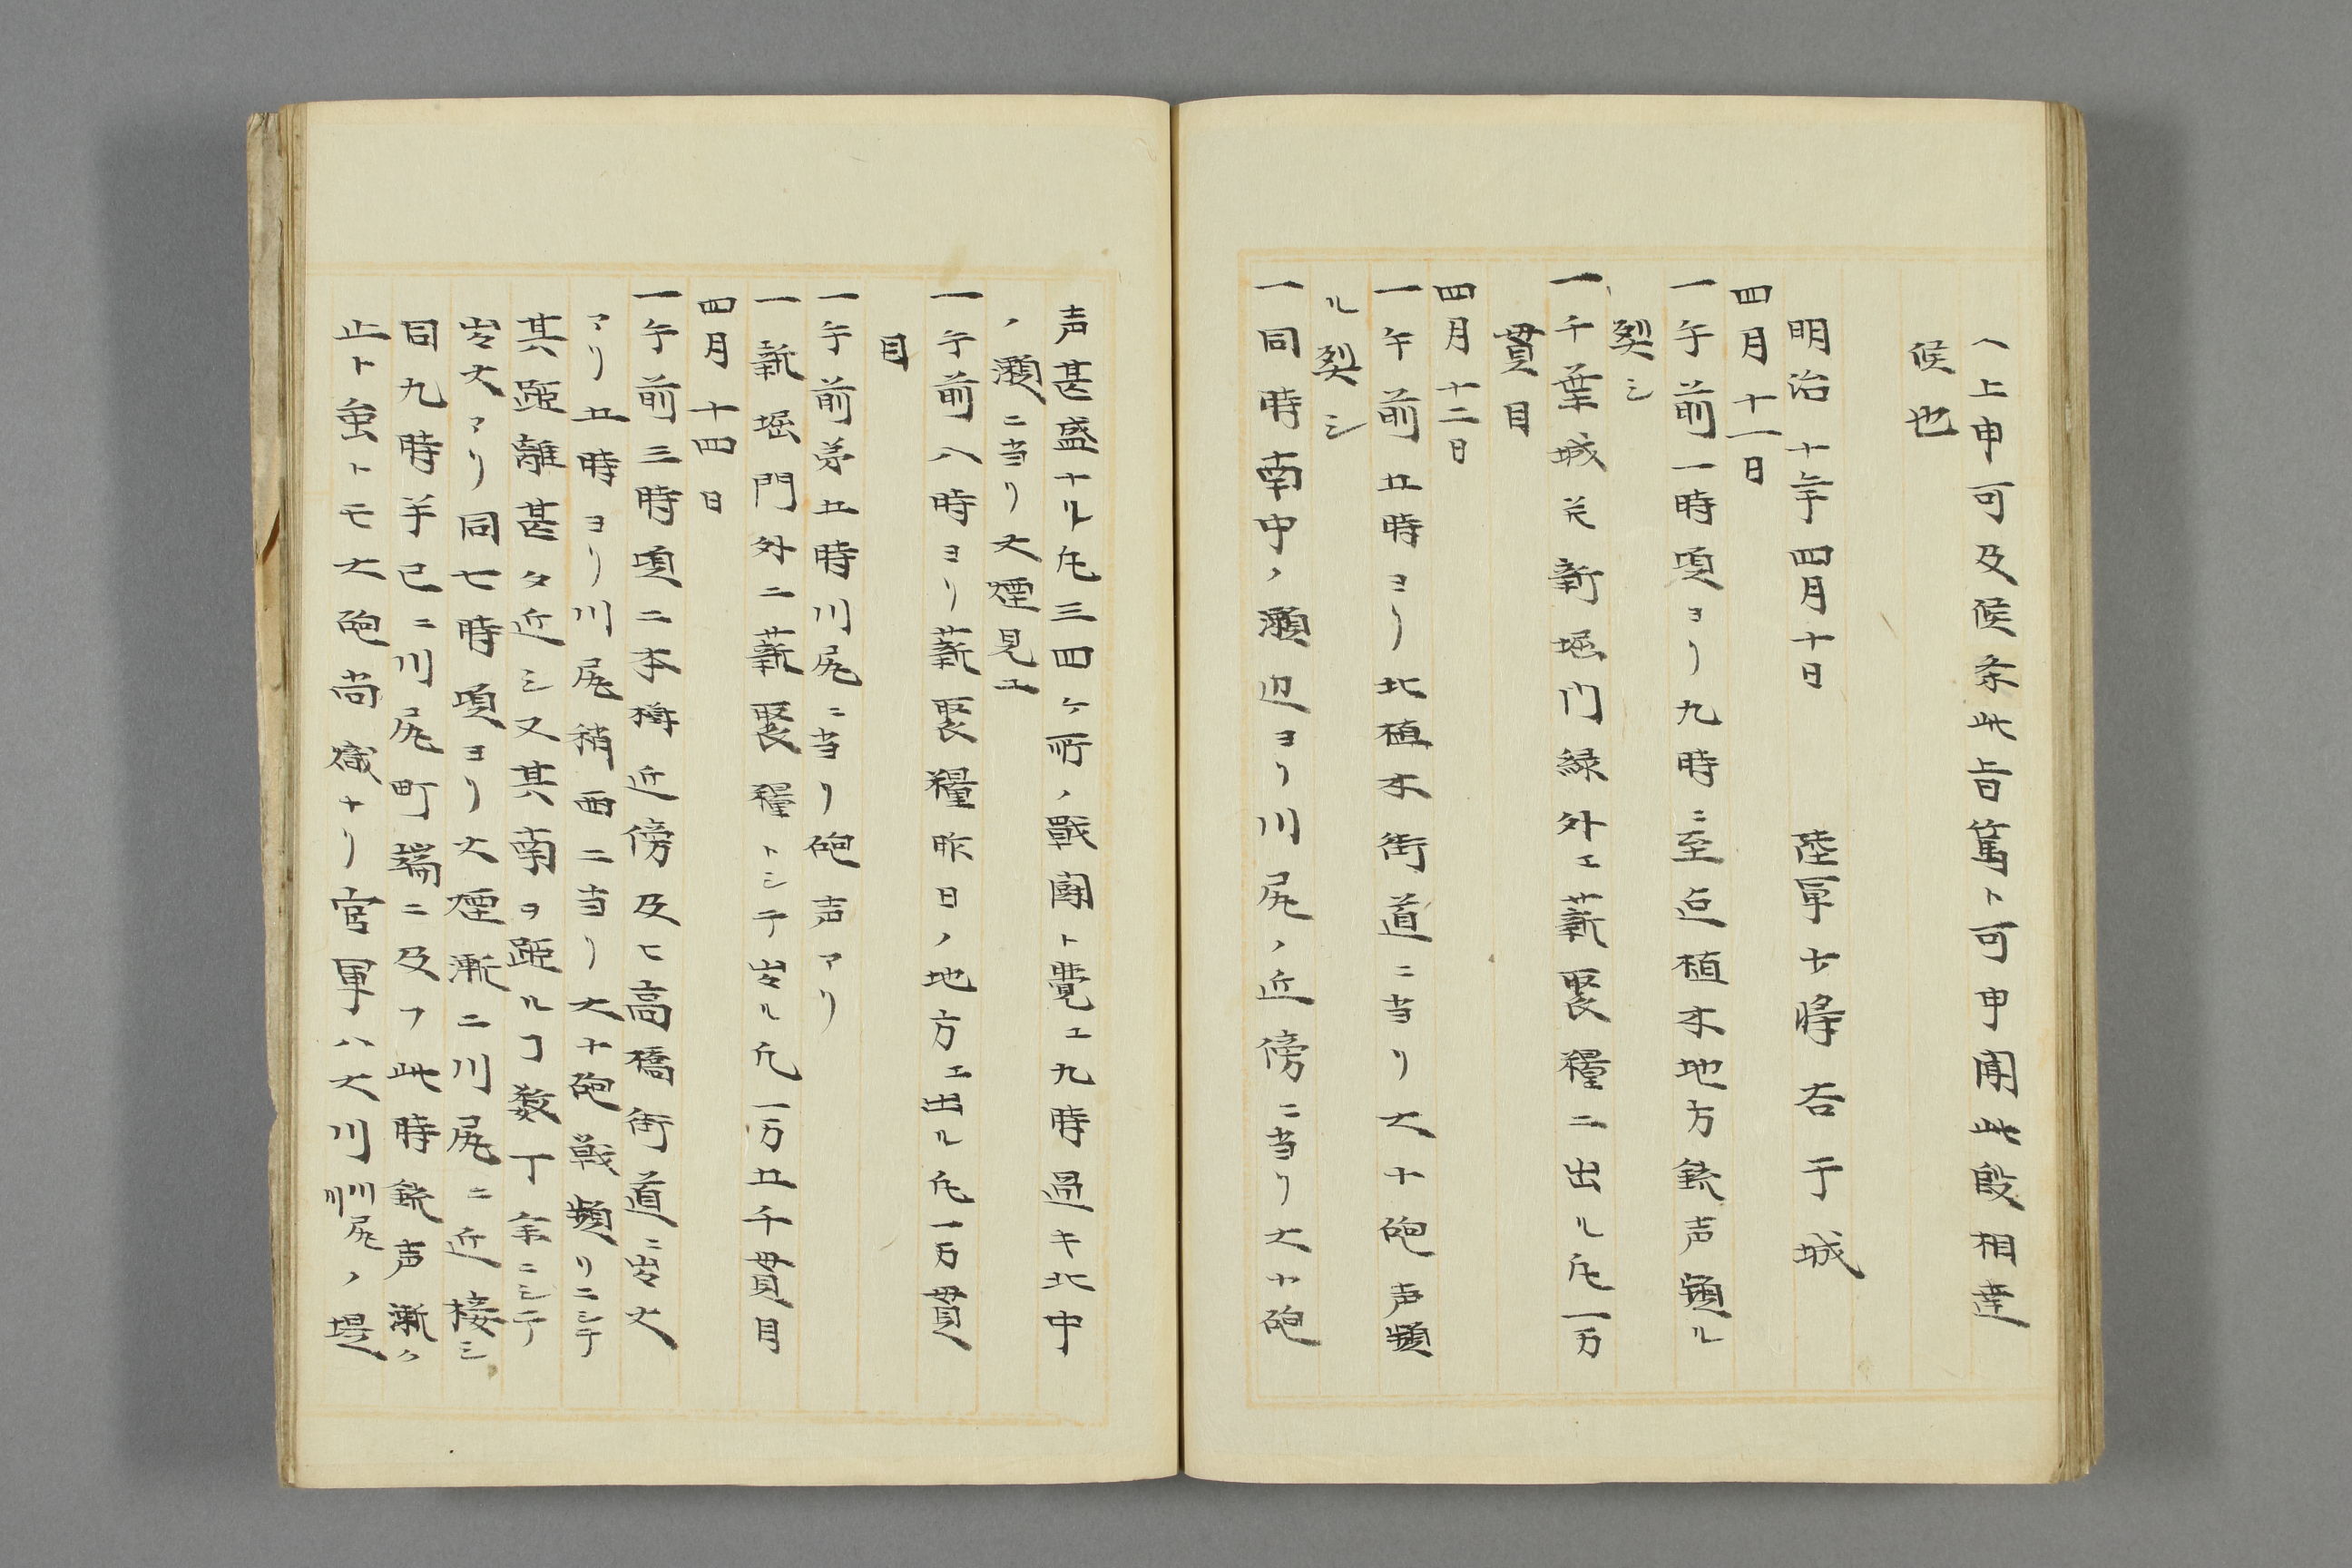 ヘ上申可及候条此旨篤ト可申聞此段相達
候也
明治十年四月十日　陸軍少将谷干城
四月十一日
一午前一時頃ヨリ九時ニ至迄植木地方銃声頻ル
烈シ
一千葉城并新堀門緑外エ薪聚糧ニ出ル凡一万
貫目
四月十二日
一午前五時ヨリ北植木街道ニ当リ大小砲声頻
ル烈シ
一同時南中ノ瀬辺ヨリ川尻ノ近傍ニ当リ大小砲
声甚盛ナル凡三四ヶ所ノ戦闘ト覺エ九時過キ北中
ノ瀬ニ当リ大煙見エ
一午前八時ヨリ薪聚糧昨日ノ地方エ出ル凡一万貫
目
一午前第五時川尻ニ当リ砲声アリ
一新堀門外ニ薪聚糧トシテ出ル凡一万五千貫目
四月十四日
一午前三時頃二本樹近傍及ヒ高橋街道ニ出火
アリ五時ヨリ川尻稍西ニ当リ大小砲戦頻リニシテ
其距離甚タ近シ又其南ヲ距ルヿ数丁余ニシテ
出火アリ同七時頃ヨリ大煙漸ニ川尻ニ近接シ
同九時半已ニ川尻町端ニ及フ此時銃声漸ク
止ト虽トモ大砲尚熾ナリ官軍ハ大川川尻ノ堤